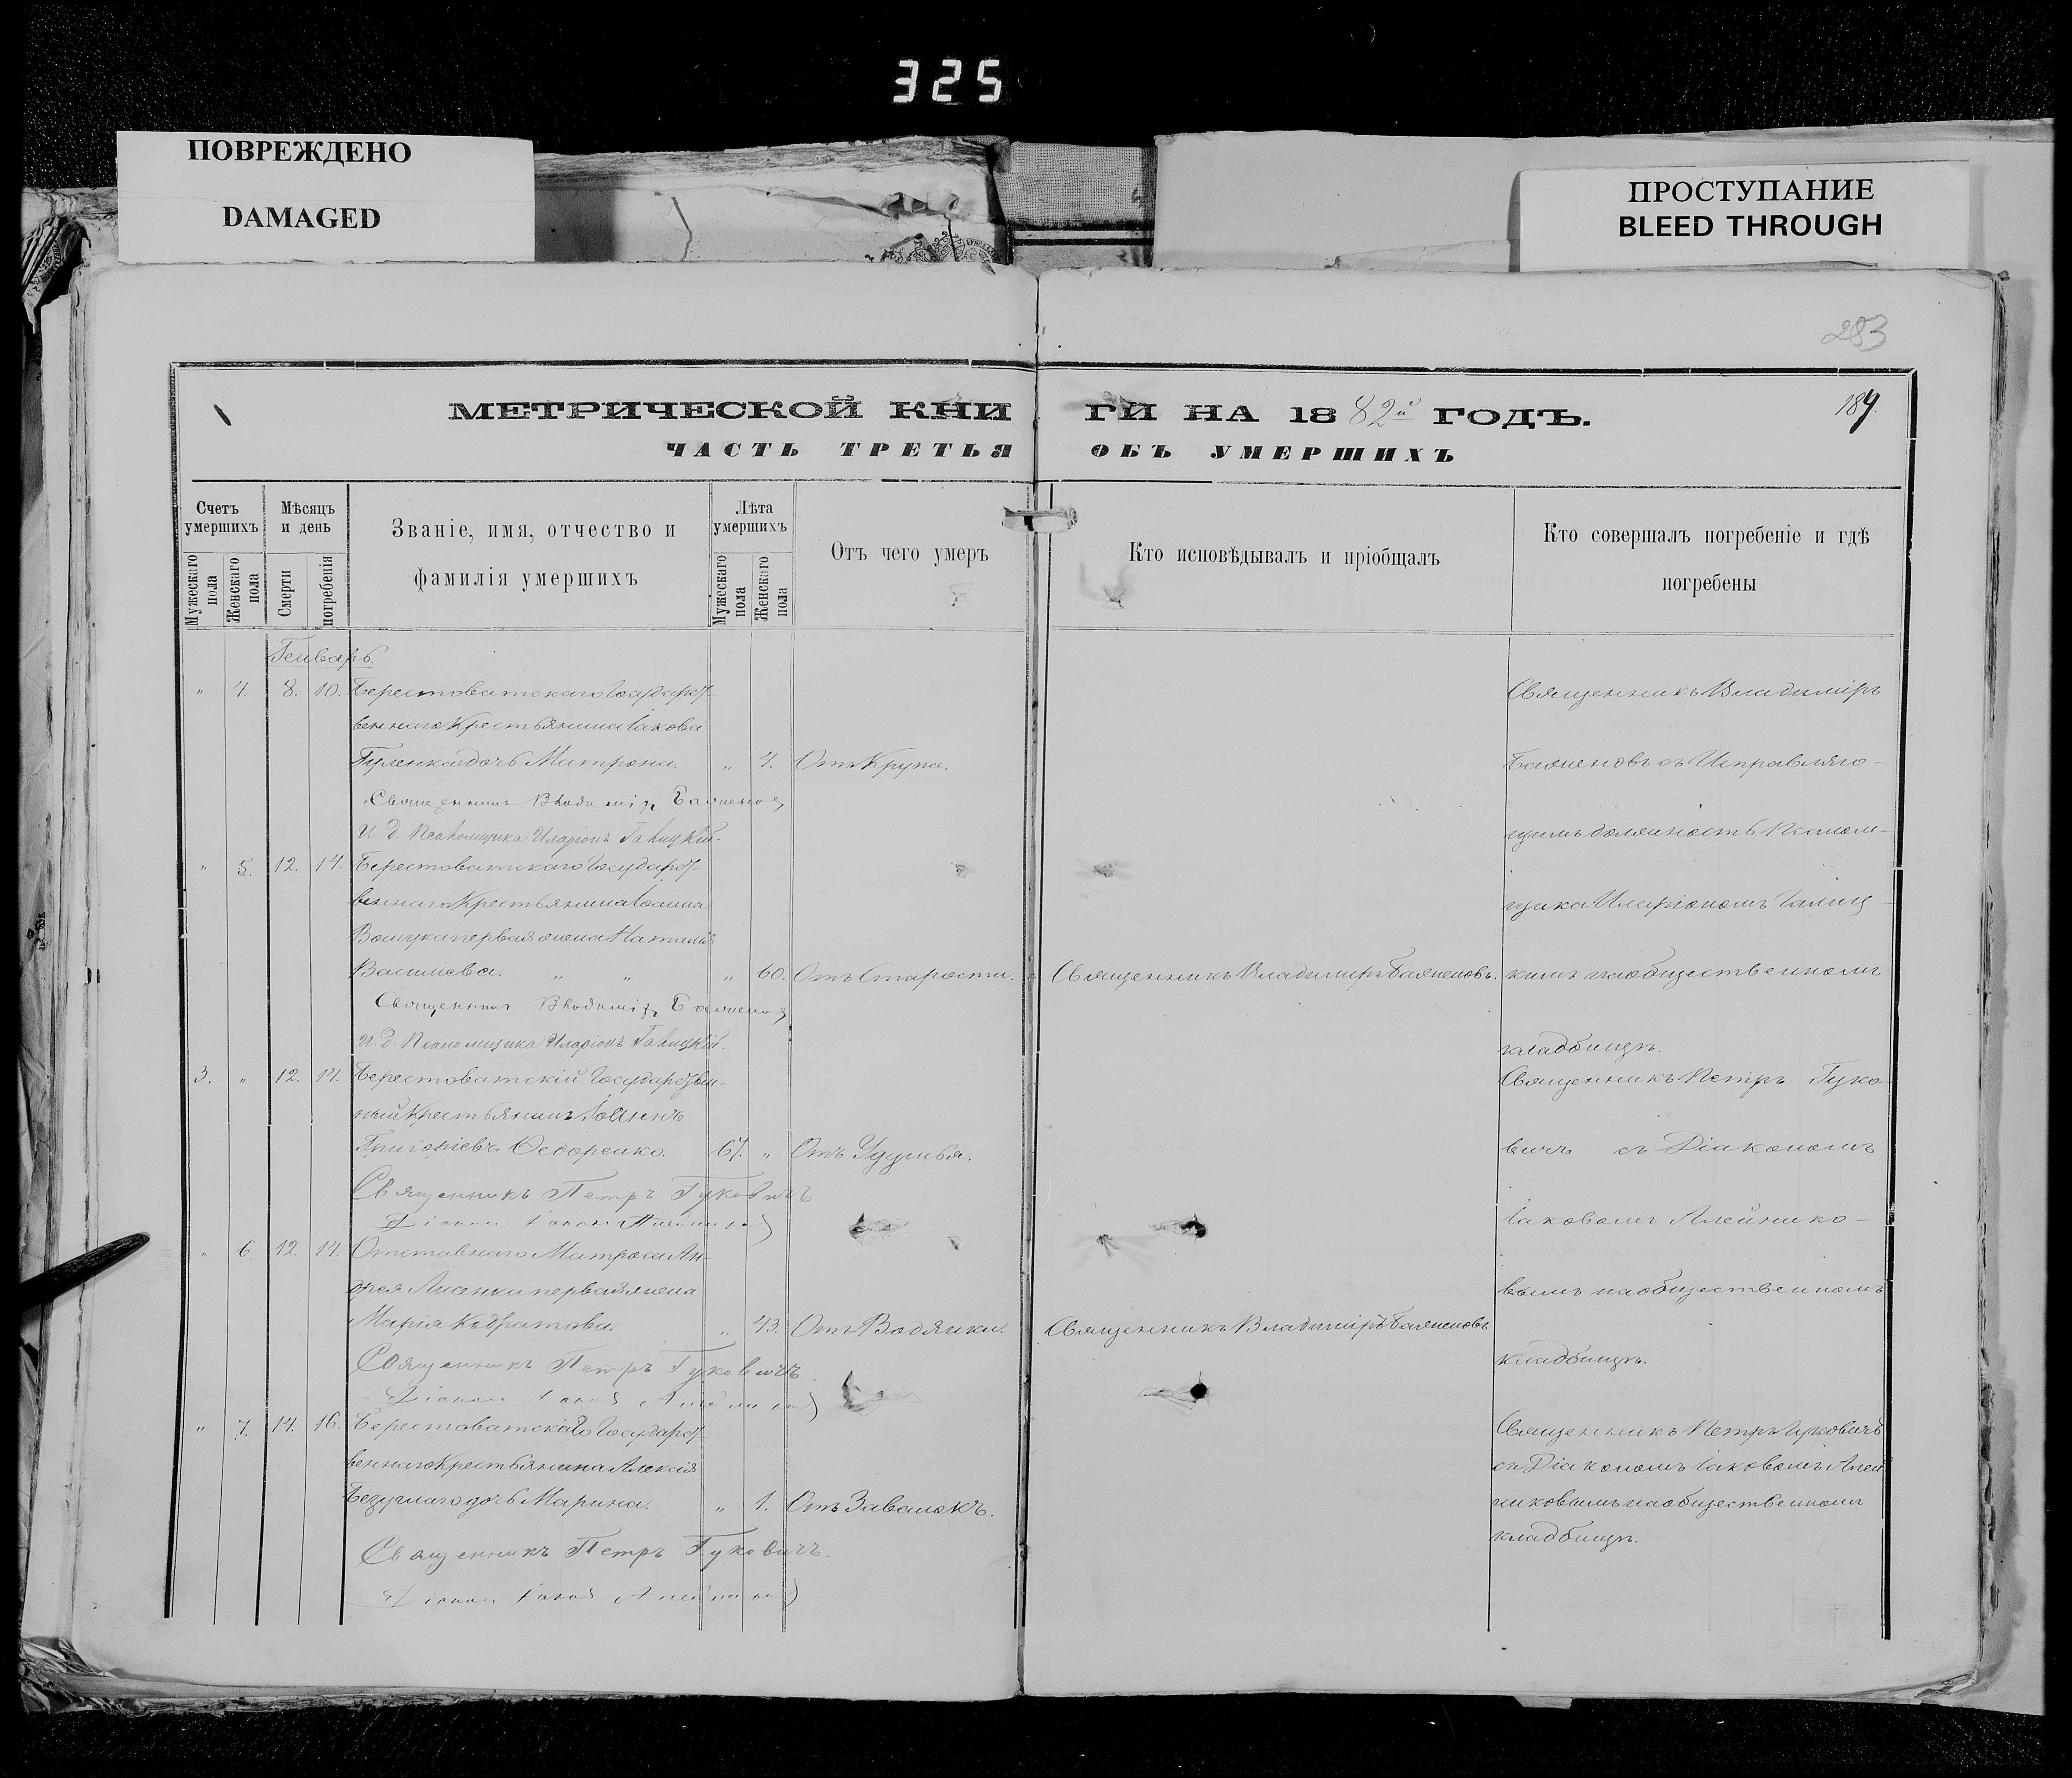 325
ПОВРЕЖДЕНО
DAMAGED
ПРОСТУПАНИЕ
BLEED THROUGH
283
МЕТРИЧЕСКОЙ КНИГИ НА 1882й ГОДЪ.
189.
ЧАСТЬ ТРЕТЬЯ ОБЪ УМЕРШИХЪ
Счетъ умершихъ
Мужескаго пола
Женскаго пола
Мѣсяцъ и день
Смерти
погребенія
Званіе, имя, отчество и
фамилія умершихъ
Лѣта умершихъ
Мужескаго пола
Женскаго пола
Отъ чего умеръ
Кто исповѣдывалъ и пріобщалъ
Кто совершалъ погребеніе и гдѣ
погребены
Генварь.
" 4. 8. 10. Берестоватскаго Государст-
Священникъ Владиміръ
веннаго Крестьянина Іакова
дочь Матрона. " 4. Отъ Крупа.
Баженовъ съ Исправляю-
Священникъ Владиміръ Баженовъ
И. Д. Псаломщика Иларіонъ Галицкій.
щимъ должность Псалом-
" 5. 12. 14. Берестоватскаго Государст-
веннаго Крестьянина Іоанна
щика Иларіономъ Галиц-
первая жена Наталія
Василіева. " " " 60. Отъ Старости. Священникъ Владиміръ Баженовъ.
кимъ на общественномъ
Священникъ Владиміръ Баженовъ
И. Д. Псаломщика Иларіонъ Галицкій.
кладбищѣ.
3. " 12. 14. Берестоватскій Государствен-
Священникъ Петръ Гуко-
ный Крестьянинъ Іоаннъ
Григоріевъ Ѳедоренко. 67. " Отъ Удушья.
вичъ съ Діакономъ
Священникъ Петръ Гуковичъ
Діаконъ Іаковъ
Іаковомъ Алейнико-
" 6. 12. 14. Отставнаго Матроса Ан-
дрея Лисенки первая жена
вымъ на общественномъ
Марія Кодратова. " 43. Отъ Водянки. Священникъ Владиміръ Баженовъ
Священникъ Петръ Гуковичъ
кладбищѣ.
Діаконъ Іаковъ
" 7. 14. 16. Берестоватскаго Государст-
Священникъ Петръ Гуковичъ
веннаго Крестьянина Алексія
съ Діакономъ Іаковомъ Алей
Безуглаго дочь Марина. " 1. Отъ Завалокъ.
никовымъ на общественномъ
кладбищѣ.
Священникъ Петръ Гуковичъ.
Діаконъ Іаковъ